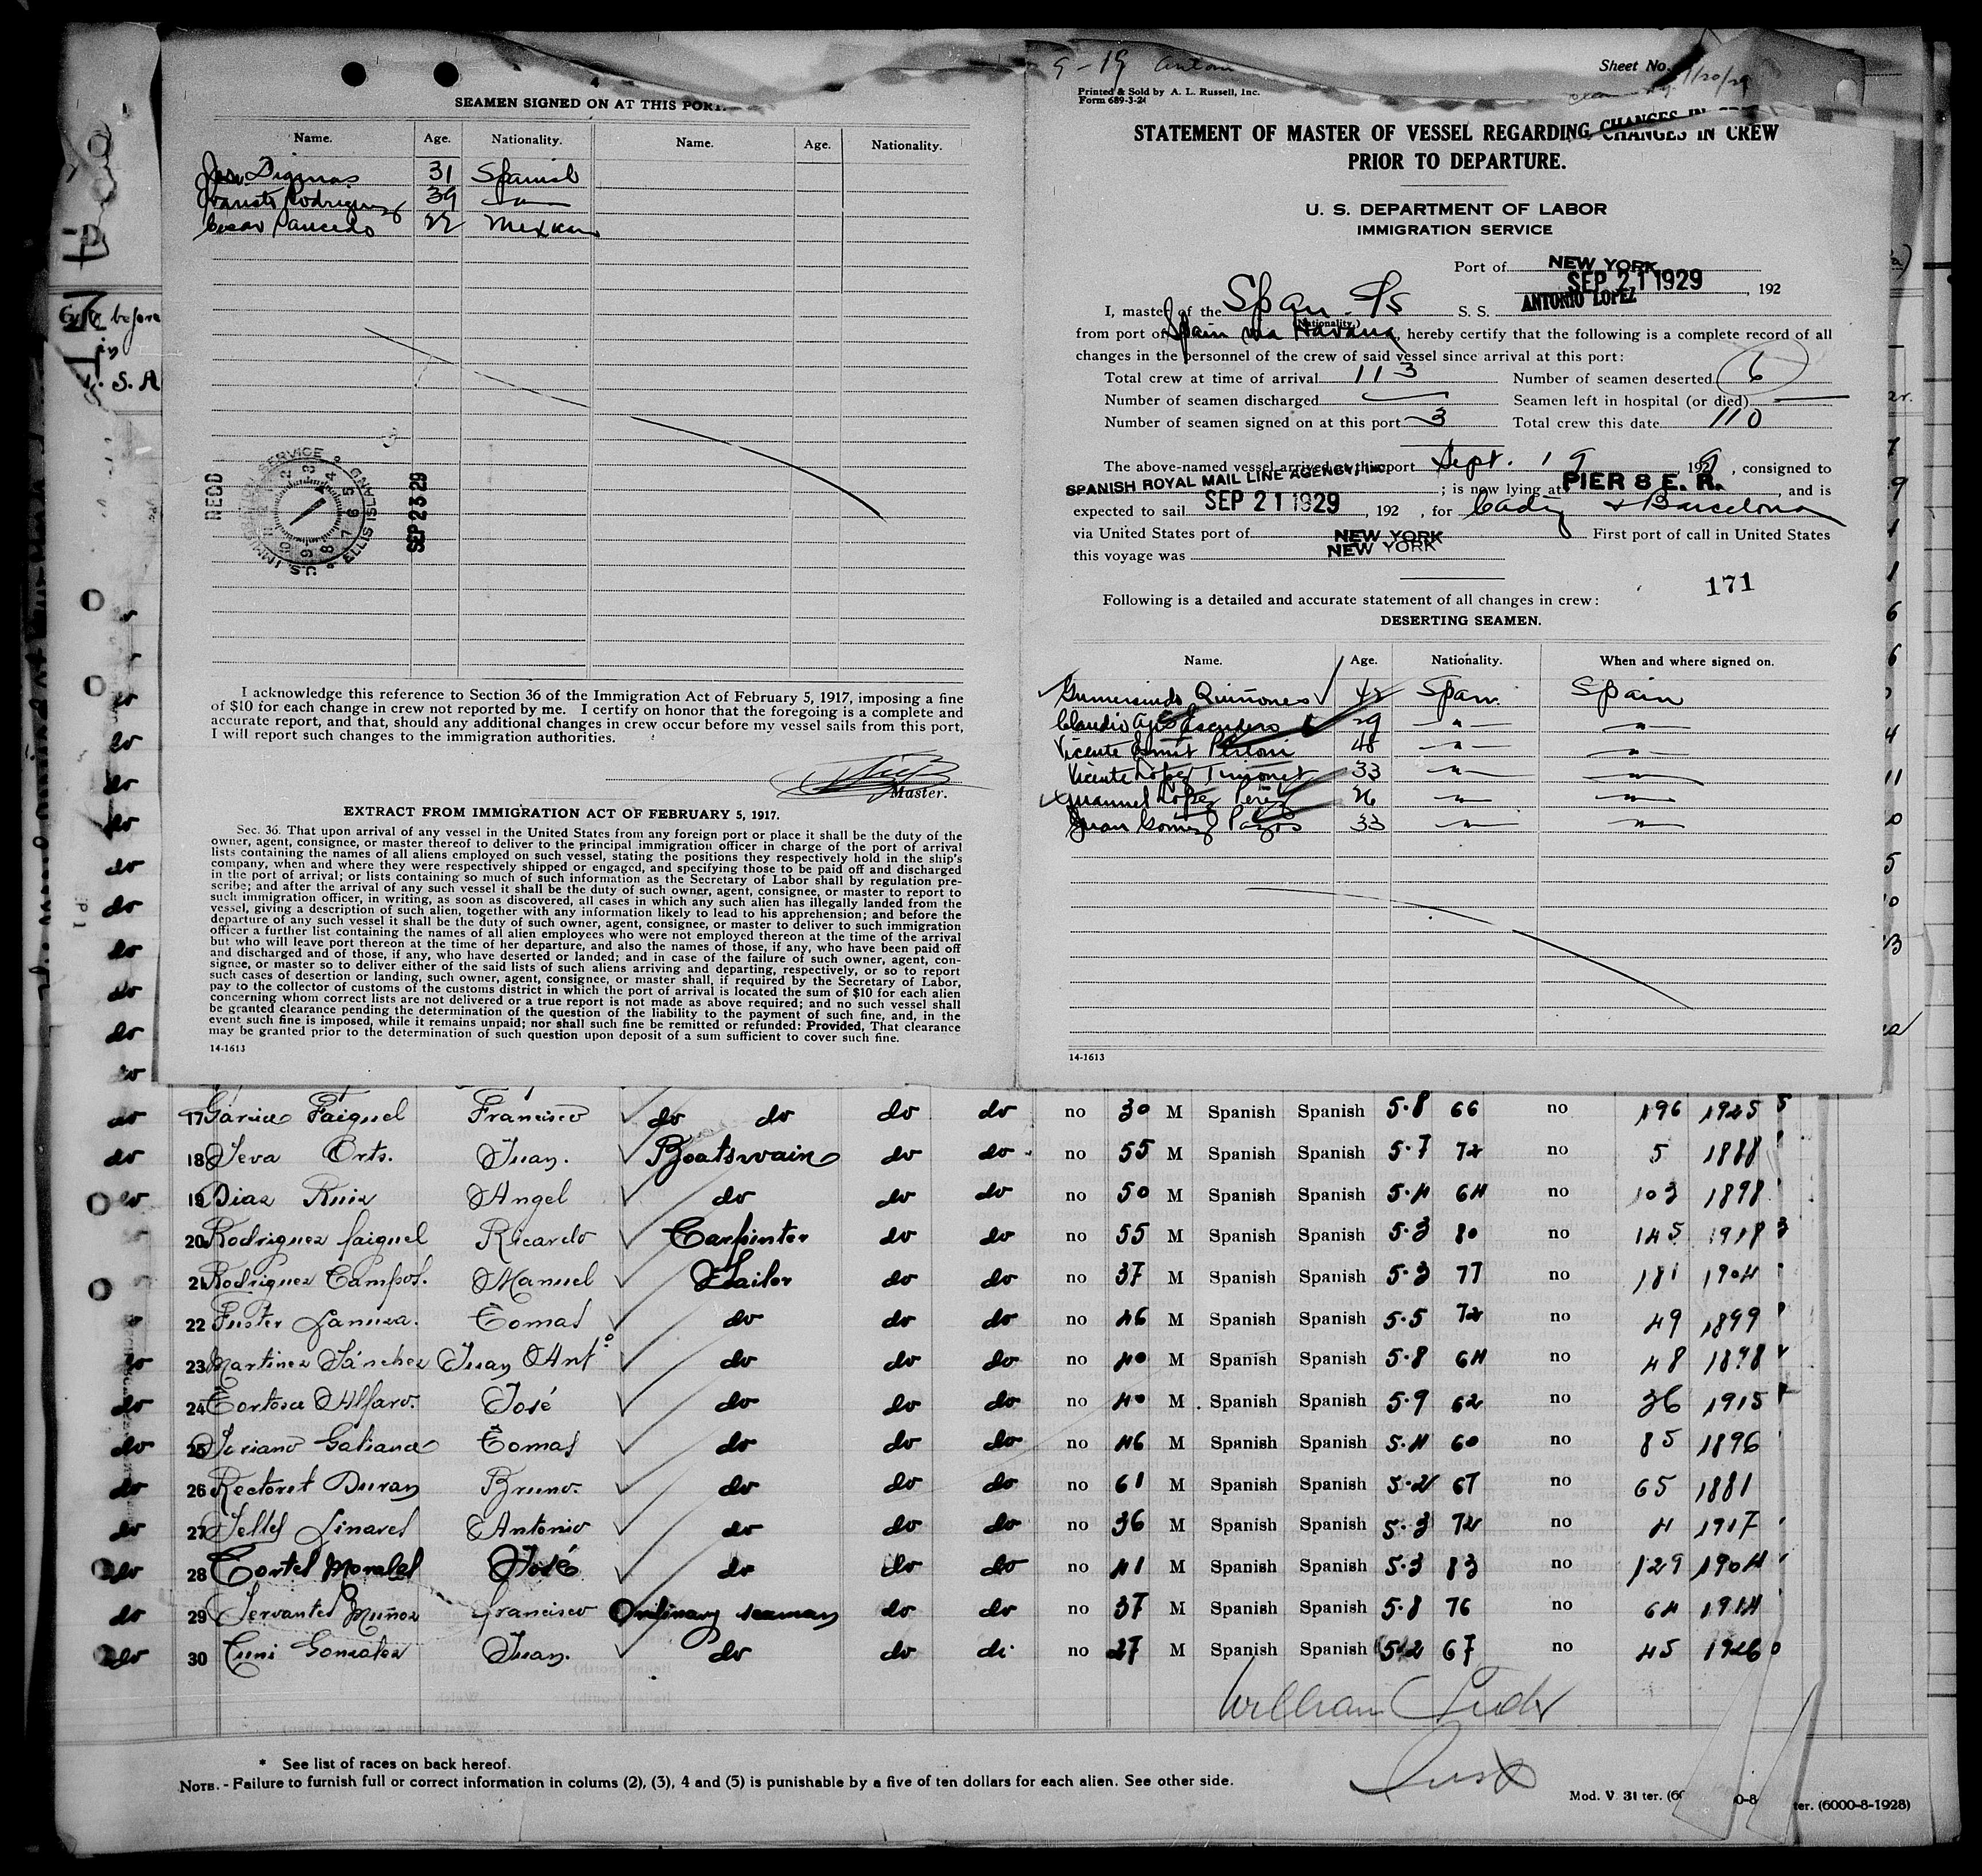 SEAMEN SIGNED ON AT THIS PORT.
Name. Age. Nationality. Name. Age. Nationality.
31 Spanish
Rodriguez 39 "
Cesar 22 Mexican
REDD
SERVICE ELLIS ISLAND U.S. IMMIG
SEP 23 29
I acknowledge this reference to Section 36 of the Immigration Act of February 5, 1917, imposing a fine
of $10 for each change in crew not reported by me. I certify on honor that the foregoing is a complete and
accurate report, and that, should any additional changes in crew occur before my vessel sails from this port,
I will report such changes to the immigration authorities.
Master.
EXTRACT FROM IMMIGRATION ACT OF FEBRUARY 5, 1917.
Sec. 36. That upon arrival of any vessel in the United States from any foreign port or place it shall be the duty of the
owner, agent, consignee, or master thereof to deliver to the principal immigration officer in charge of the port of arrival
lists containing the names of all aliens employed on such vessel, stating the positions they respectively hold in the ship's
company, when and where they were respectively shipped or engaged, and specifying those to be paid off and discharged
in the port of arrival; or lists containing so much of such information as the Secretary of Labor shall by regulation pre-
scribe; and after the arrival of any such vessel it shall be the duty of such owner, agent, consignee, or master to report to
such immigration officer, in writing, as soon as discovered, all cases in which any such alien has illegally landed from the
vessel, giving a description of such alien, together with any information likely to lead to his apprehension; and before the
departure of any such vessel it shall be the duty of such owner, agent, consignee, or master to deliver to such immigration
officer a further list containing the names of all alien employees who were not employed thereon at the time of the arrival
but who will leave port thereon at the time of her departure, and also the names of those, if any, who have been paid off
and discharged and of those, if any, who have deserted or landed; and in case of the failure of such owner, agent, con-
signee, or master so to deliver either of the said lists of such aliens arriving and departing, respectively, or so to report
such cases of desertion or landing, such owner, agent, consignee, or master shall, if required by the Secretary of Labor,
pay to the collector of customs of the customs district in which the port of arrival is located the sum of $10 for each alien
concerning whom correct lists are not delivered or a true report is not made as above required; and no such vessel shall
be granted clearance pending the determination of the question of the liability to the payment of such fine, and, in the
event such fine is imposed, while it remains unpaid; nor shall such fine be remitted or refunded: Provided, That clearance
may be granted prior to the determination of such question upon deposit of a sum sufficient to cover such fine.
14-1613
9-19
Sheet No.
Printed & Sold by A. L. Russell, Inc.
Form 689-3-24
STATEMENT OF MASTER OF VESSEL REGARDING CHANGES IN CREW
PRIOR TO DEPARTURE.
U. S. DEPARTMENT OF LABOR
IMMIGRATION SERVICE
Port of NEW YORK
SEP 21 1929, 192
I, master of the Span S/S S. S. ANTONIO LOPEZ
(Nationality.)
from port of Spain via Havana, hereby certify that the following is a complete record of all
changes in the personnel of the crew of said vessel since arrival at this port:
Total crew at time of arrival 113 Number of seamen deserted 6
Number of seamen discharged — Seamen left in hospital (or died) —
Number of seamen signed on at this port 3 Total crew this date 110
The above-named vessel arrived at this port Sept. 19, 1929, consigned to
SPANISH ROYAL MAIL LINE AGENCY, Inc. ; is now lying at PIER 8 E. R., and is
expected to sail SEP 21 1929, 192 , for Cadiz & Barcelona
via United States port of NEW YORK First port of call in United States
this voyage was NEW YORK
171
Following is a detailed and accurate statement of all changes in crew:
DESERTING SEAMEN.
Name. Age. Nationality. When and where signed on.
Gumersindo Quiñones 42 Span. Spain
Claudio Escudero 29 " "
Vicente 48 " "
Vicente Lopez 33 " "
Manuel Lopez Perez 26 " "
Juan Gomez Pazos 33 " "
14-1613
before
in
U. S. A
do 17 Garcia Faiquel Francisco do do do do no 30 M Spanish Spanish 5.8 66 no 196 1925
do 18 Orts. Juan. Boatswain do do no 55 M Spanish Spanish 5.7 72 no 5 1888
do 19 Diaz Ruiz Angel do do do no 50 M Spanish Spanish 5.4 64 no 103 1898
20 Rodriguez Ricardo Carpinter do do no 55 M Spanish Spanish 5.3 80 no 145 1918
21 Rodriguez Campos. Manuel Sailor do do no 37 M Spanish Spanish 5.3 77 no 181 1904
22 Fuster Tomas do do do no 46 M Spanish Spanish 5.5 72 no 49 1899
do 23 Martinez Sánchez Juan Antº do do do no 40 M Spanish Spanish 5.8 64 no 48 1898
do 24 Tortosa Alfaro. José do do do no 40 M Spanish Spanish 5.9 62 no 36 1915
do 25 Soriano Galiana Tomas do do do no 46 M Spanish Spanish 5.4 60 no 85 1896
do 26 Rectoret Duran Bruno. do do do no 61 M Spanish Spanish 5.2 67 no 65 1881
do 27 Linares Antonio do do do no 36 M Spanish Spanish 5.3 72 no 4 1917
do 28 Cortes Morales José do do do no 41 M Spanish Spanish 5.3 83 no 129 1904
do 29 Servantes Muñoz Francisco Ordinary seaman do do no 37 M Spanish Spanish 5.8 76 no 64 1914
do 30 Gonzalez Juan. do do di. no 27 M Spanish Spanish 5.2 67 no 45 1926
William
Insp
* See list of races on back hereof.
NOTE. - Failure to furnish full or correct information in colums (2), (3), 4 and (5) is punishable by a five of ten dollars for each alien. See other side.
Mod. V 31 ter.
ter. (6000-8-1928)